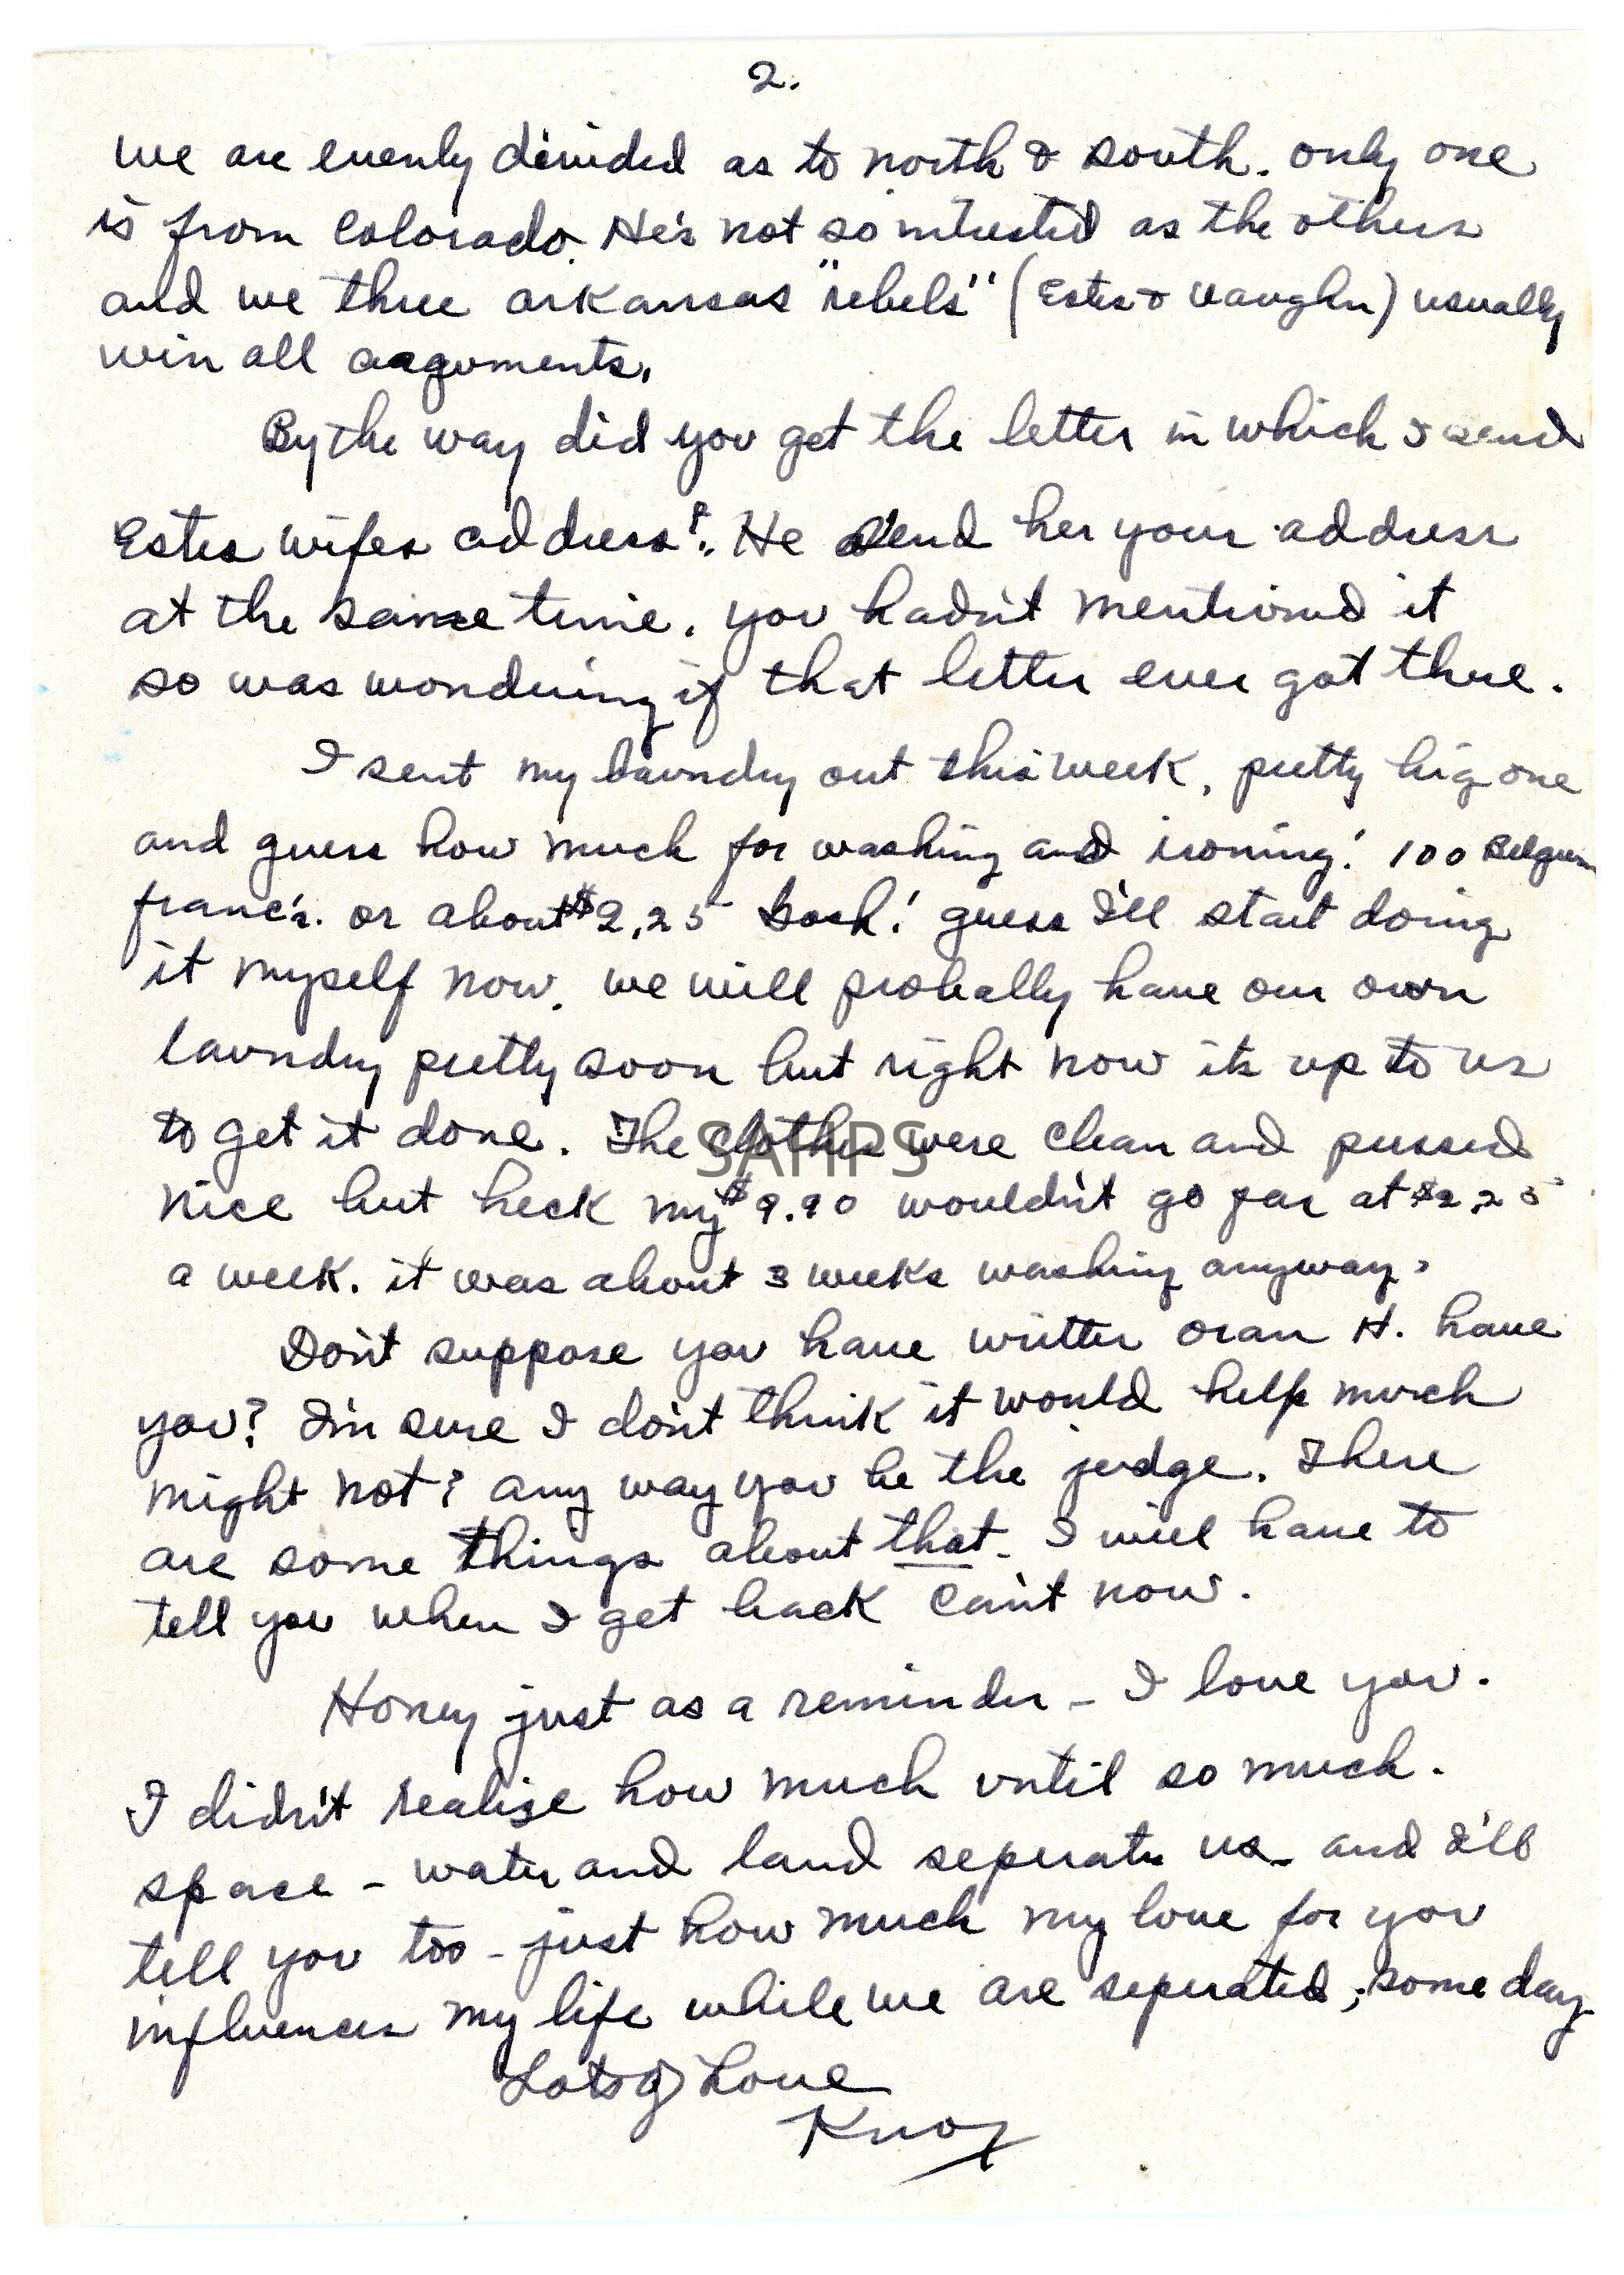 2.
we are evenly divided as to north & south. only one
is from Colorado. He's not so intrested as the others
and we three arkansas "rebels" (Estes & Vaughn) usually
win all arguments.
By the way did you get the letter in which I send
Estes wifes address? He send her your address
at the same time. you hadn't mentioned it
so was wondering if that letter ever got there.
I sent my laundry out this week, pretty big one
and guess how much for washing and ironing! 100 Belgium
franc's. or about $2.25 Gosh! guess I'll start doing
it myself now. we will probally have our own
laundry pretty soon but right now its up to us
to get it done. The clothes were clean and pressed
SAHPS
nice but heck my $9.90 wouldn't go far at $2.25
a week. it was about 3 weeks washing anyway.
Don't suppose you have written oran H. have
you? I'm sure I don't think it would help much
might not? any way you be the judge. There
are some things about that - I will have to
tell you when I get back can't now.
Honey just as a reminder - I love you.
I didn't realise how much until so much.
space - water and land seperate us - and I'll
tell you too - just how much my love for you
influences my life while we are seperated, some day
Lots of Love
Knox